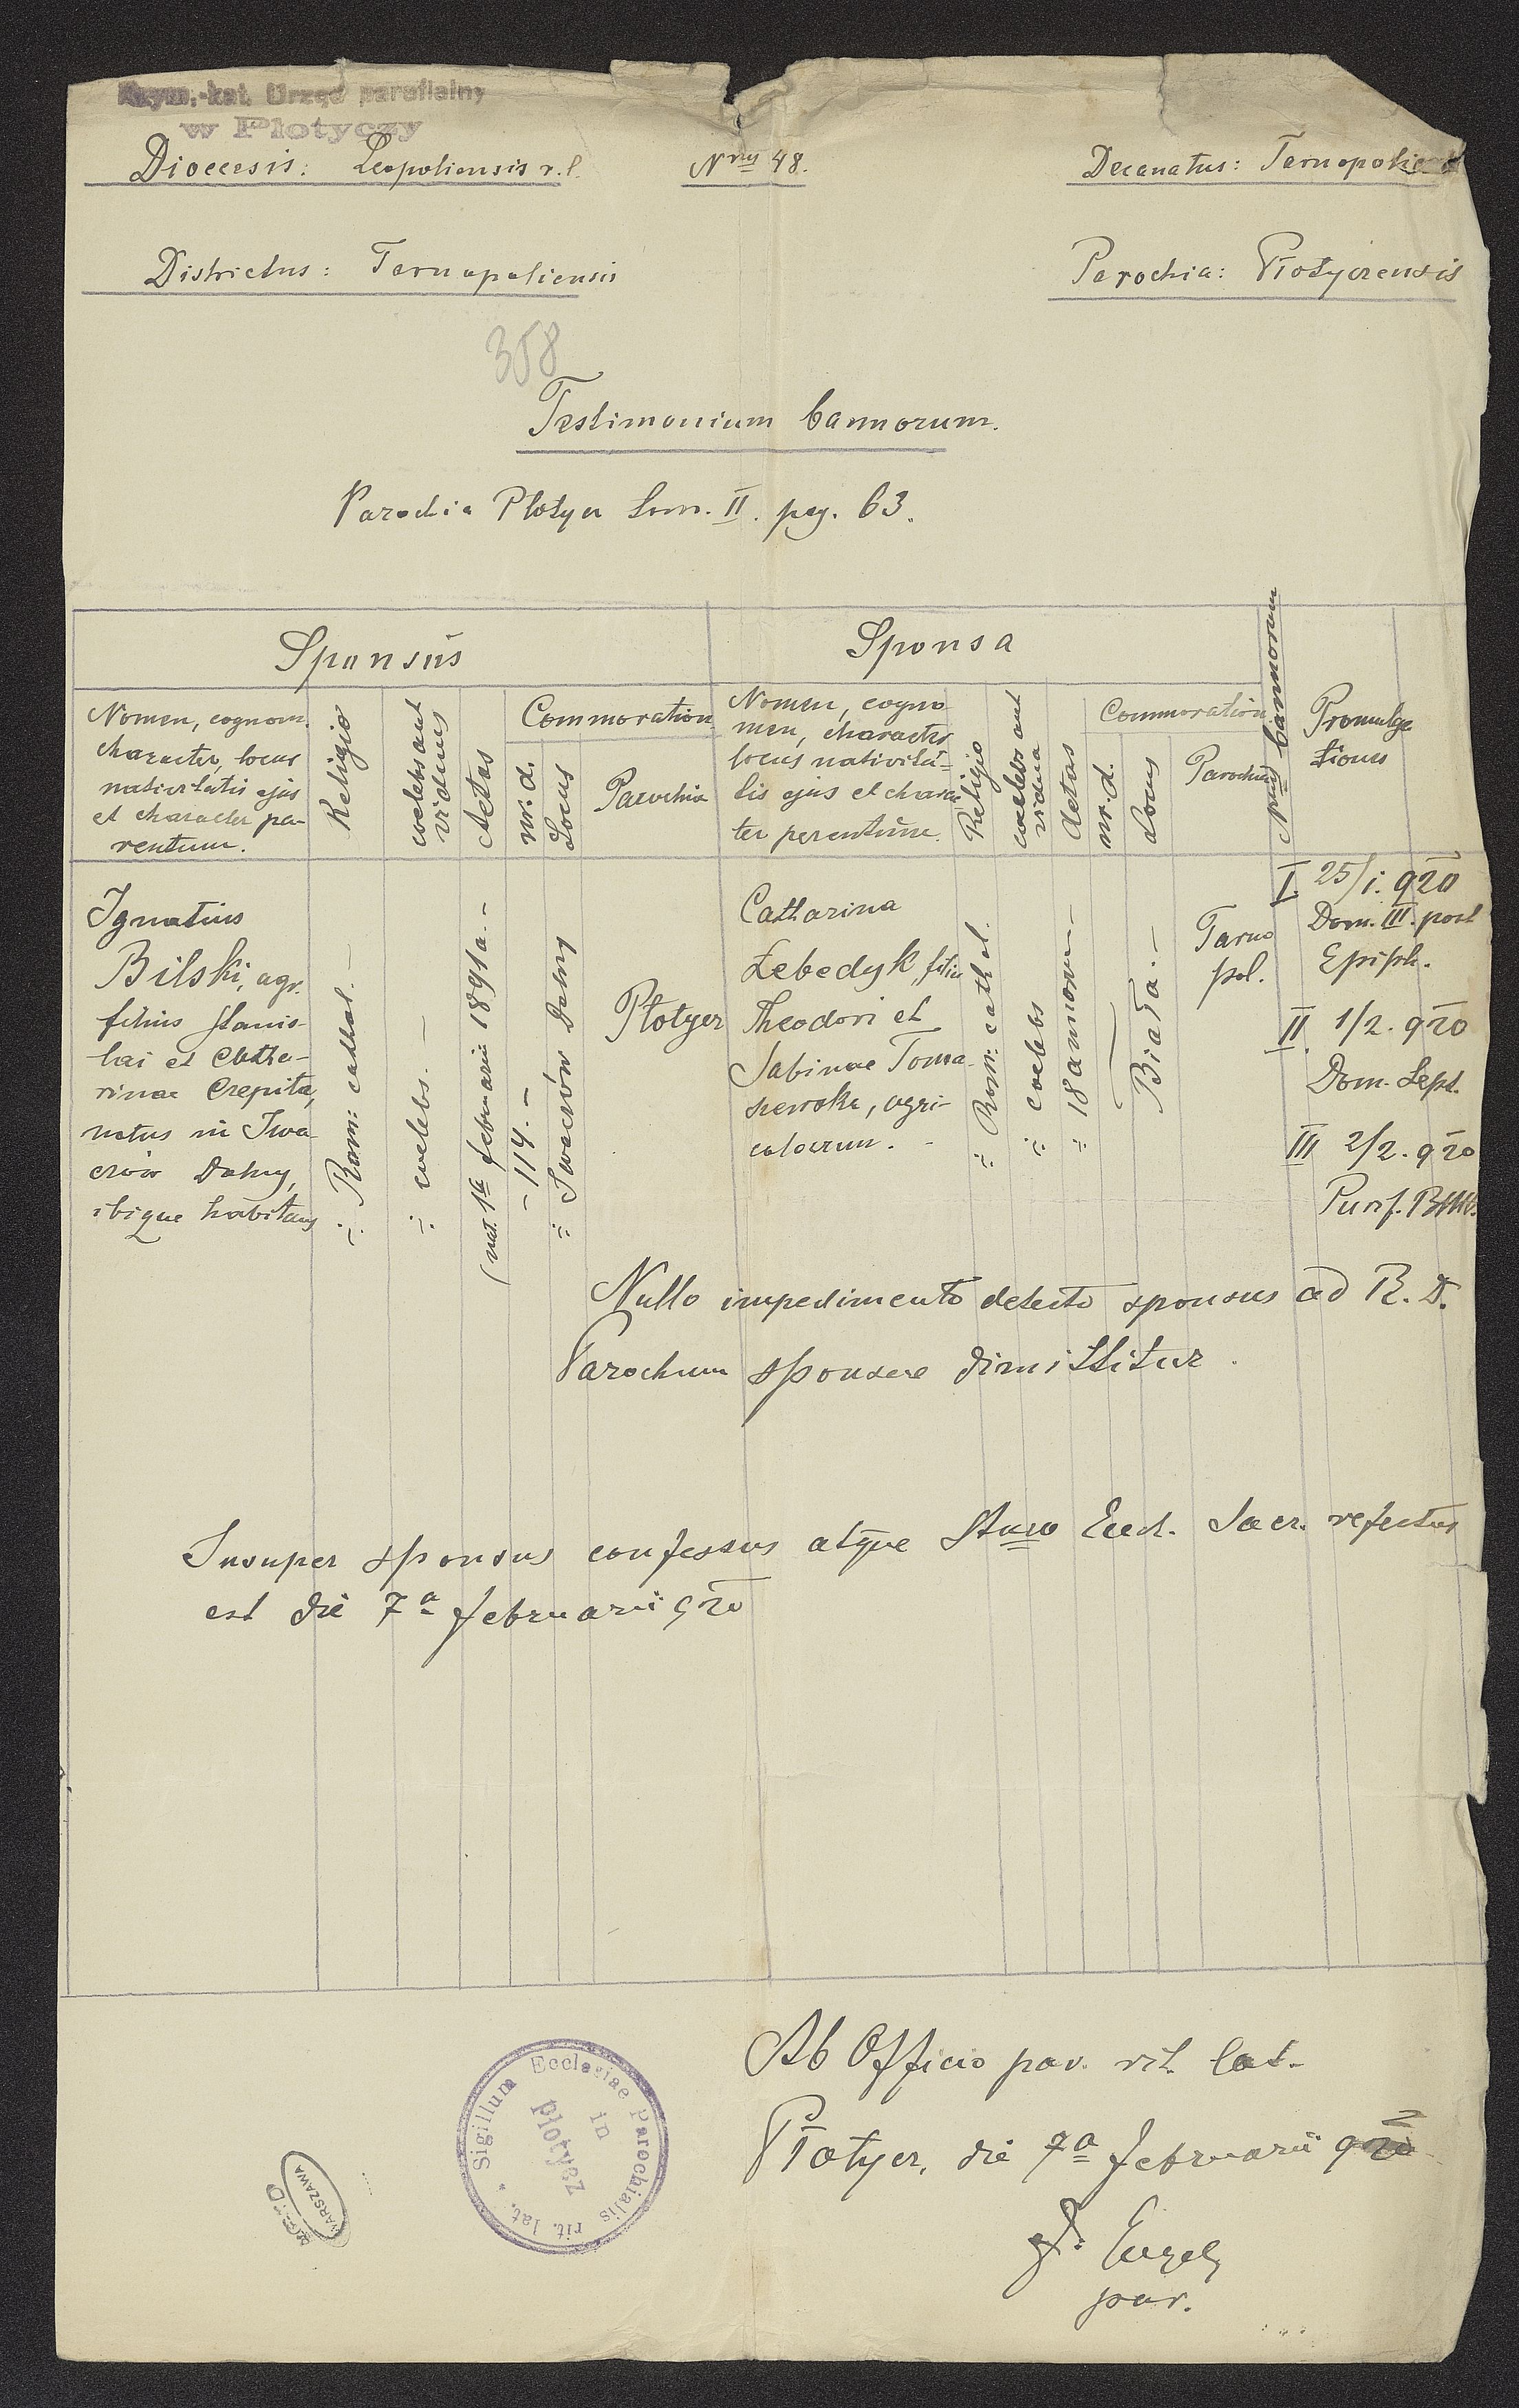 Rzym.-kat. Urząd parafialny
w Płotyczy
Dioecesis: Leopoliensis r. l.
Nrus 48.
Decanatus: Tarnopoliensis
Districtus: Tarnopoliensis
Parochia: Płotyczensis
358
Testimonium bannorum.
Parochia Płotycz Tom. II. pag. 63.
Sponsus
Sponsa
Nomen, cognom.
character, locus
nativitatis ejus
et character pa-
rentum.
Religio
coelebs aut
viduus
Aetas
Commoration
nr. d.
Locus
Parochia
Nomen, cogno
men, character
locus nativita-
tis ejus et charac
ter parentum.
Religio
coelebs aut
vidua
Aetas
Commoration
nr. d.
Locus
Parochia
Nrus bannorum
Promulga
tiones
Ignatius
Bilski, agr.
filius Stanis-
lai et Catha-
rinae Czepita,
natus in Iwa-
czów Dolny,
ibique habitans
-:- Rom: cathol. -
-:- coelebs. -
(nat. 1a februarii 1891 a. -
- 114. -
-:- Iwaczów Dolny
Płotycz
Catharina
Łebedyk, filia
Theodori et
Sabinae Toma-
szewska, agri-
colarum. -
-:- Rom: cathol.
-:- coelebs
-:- 18 annorum -
Biała. -
Tarno
pol.
I. 25/1. 920
Dom. III. post
Epiph.
II 1/2. 920
Dom. Sept.
III 2/2. 920
Purif. BMV.
Nullo impedimento detecto sponsus ad R. D.
Parochum sponsae dimittitur.
Insuper sponsus confessus atque Stmo Euch. Sacr. refectus
est die 7a februarii 920
Ab Officio par. rit. lat.
Płotycz, die 7a februarii 920
Engel
par.
Sigillum Ecclesiae Parochialis rit. lat.
in
płotycz
WARSZAWA